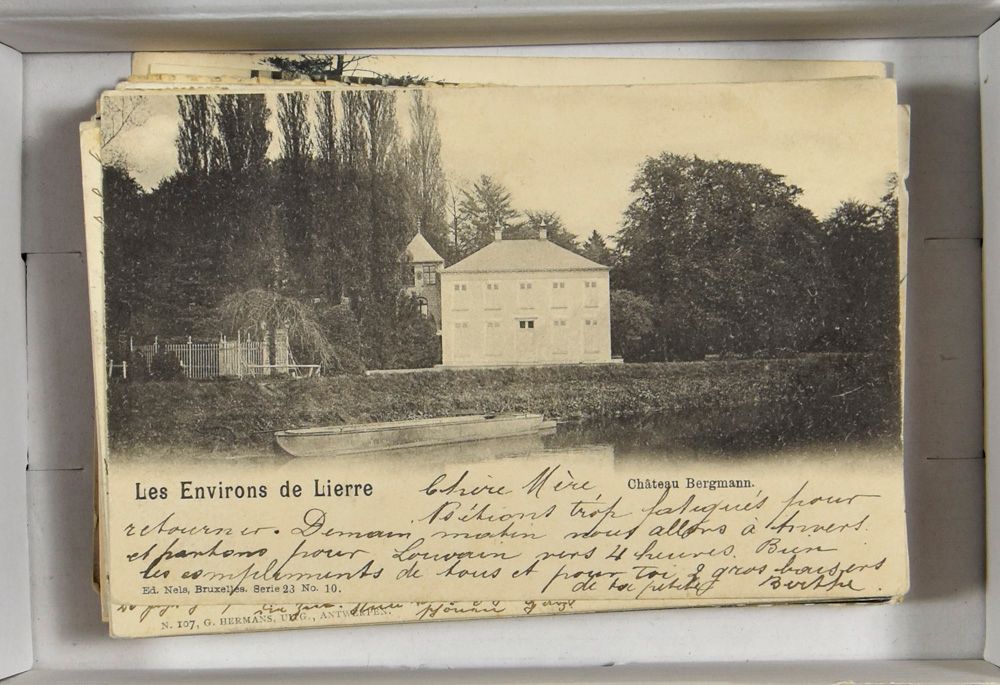 Les Environs de Lierre
Château Bergmann.
Chère Mère
N'étions trop fatigués pour
retourner. Demain matin nous allons à Anvers.
et partons pour Louvain vers 4 heures. Bien
les complements de tous et pour toi 2 gros baisers
de ta petite Berthe
Ed. Nels, Bruxelles. Serie 23 No. 10.
N. 107, G. HERMANS, UITG., ANTWERPEN.